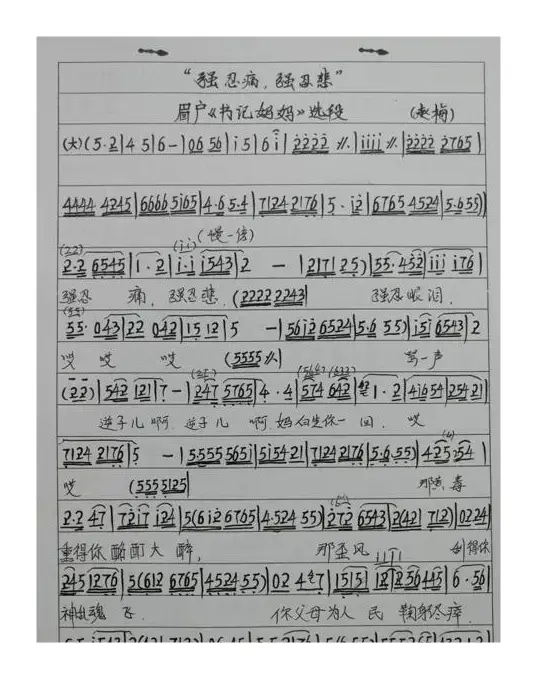 “强忍痛，强忍悲”
眉户《书记妈妈》选段 （赵梅）
(大)(5·2|4 5|6-|0 6 5 6|i 5|6 i|2222 ⁄⁄.|iiii ⁄⁄.|2222 2765|
4444 4245|6666 5165|4·6 5·4|7124 2176|5 · i2|6765 4524|5·6 55)|
(慢一倍)
(22) (ii)
2·2 6545|1 · 2|i·i i543|2 - |2171 25)|55·452|iii i76|
强忍 痛，强忍悲，(2222 2243| 强忍眼泪，
55 043|22 042|15 12|5 -|5612 6524|5·6 55)|i5i 6543|2
哎 哎 哎 (5555 ⁄⁄.| 骂一声
(22)|542 121|7-|247 5765|4 · 4|574 642|1 · 2|41654|25421|
逆子儿啊 逆子儿 啊 妈白生你一 回， 哎
7124 2176|5 -|5555 5651|515421|7124 2176|5·6·55)|425 254|
哎 (555 5125| 那 毒
2·2 47|7217 124|5(612 6765|4·524 55)|272 6543|2(42 712)|0224|
熏得你酩酊大 醉， 那歪风 刮得你
245 1276|5(612 6765|4524 55)|02 47|1515|12 12 56 445|6 · 56|
神乱魂 飞 你父母为人 民 鞠躬尽瘁，